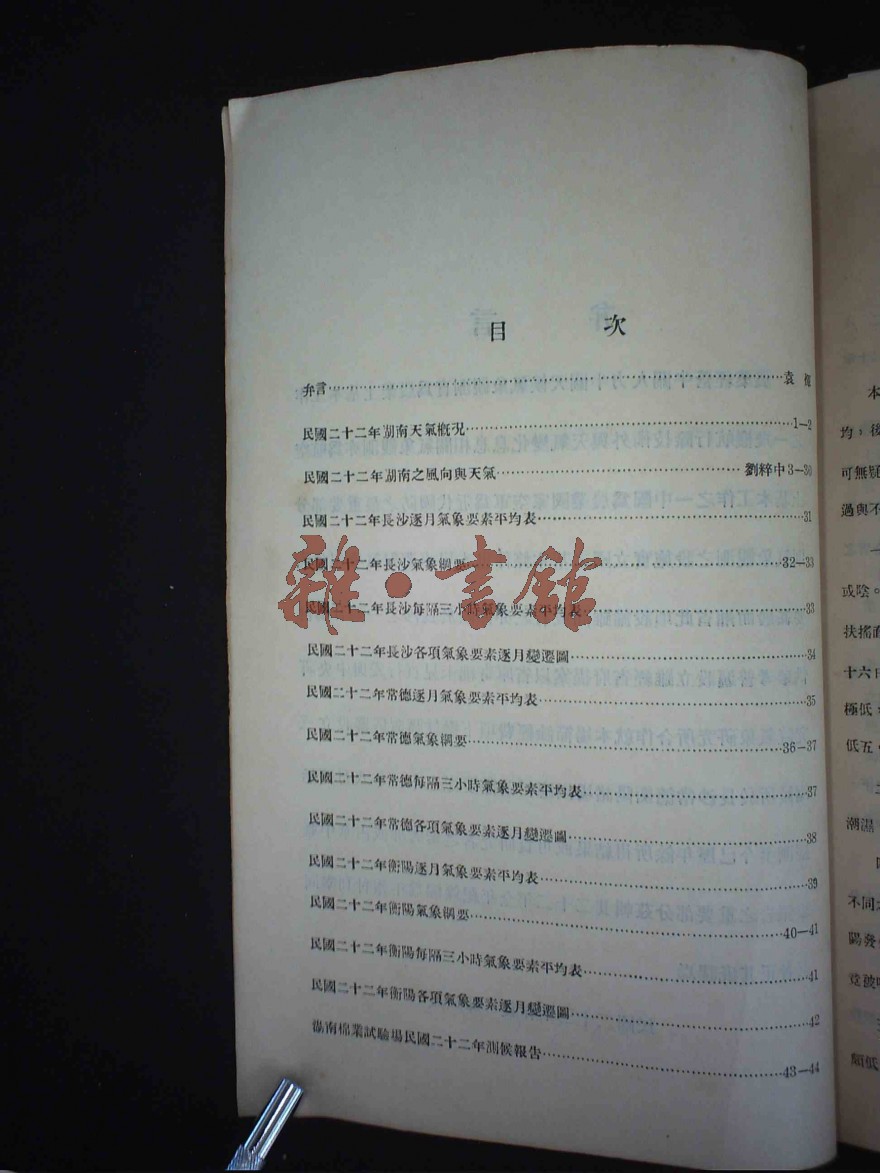 目 次
弁言……袁
民國二十二年湖南天氣概况……1—2
民國二十二年湖南之風向與天氣……劉粹中3—30
民國二十二年長沙逐月氣象要素平均表……31
民國二十二年長沙氣象綱要……32—33
民國二十二年長沙每隔三小時氣象要素平均表……33
民國二十二年長沙各項氣象要素逐月變遷圖……34
民國二十二年常德逐月氣象要素平均表……35
民國二十二年常德氣象綱要……36—37
民國二十二年常德每隔三小時氣象要素平均表……37
民國二十二年常德各項氣象要素逐月變遷圖……38
民國二十二年衡陽逐月氣象要素平均表……39
民國二十二年衡陽氣象綱要……40—41
民國二十二年衡陽每隔三小時氣象要素平均表……41
民國二十二年衡陽各項氣象要素逐月變遷圖……42
湖南棉業試驗場民國二十二年測候報告……43—44
雜·書館
本
均；後
可無疑
過與不
一
或陰。
扶搖而
十六日
極低，
低五．
潮濕
不同
陽發
頗低